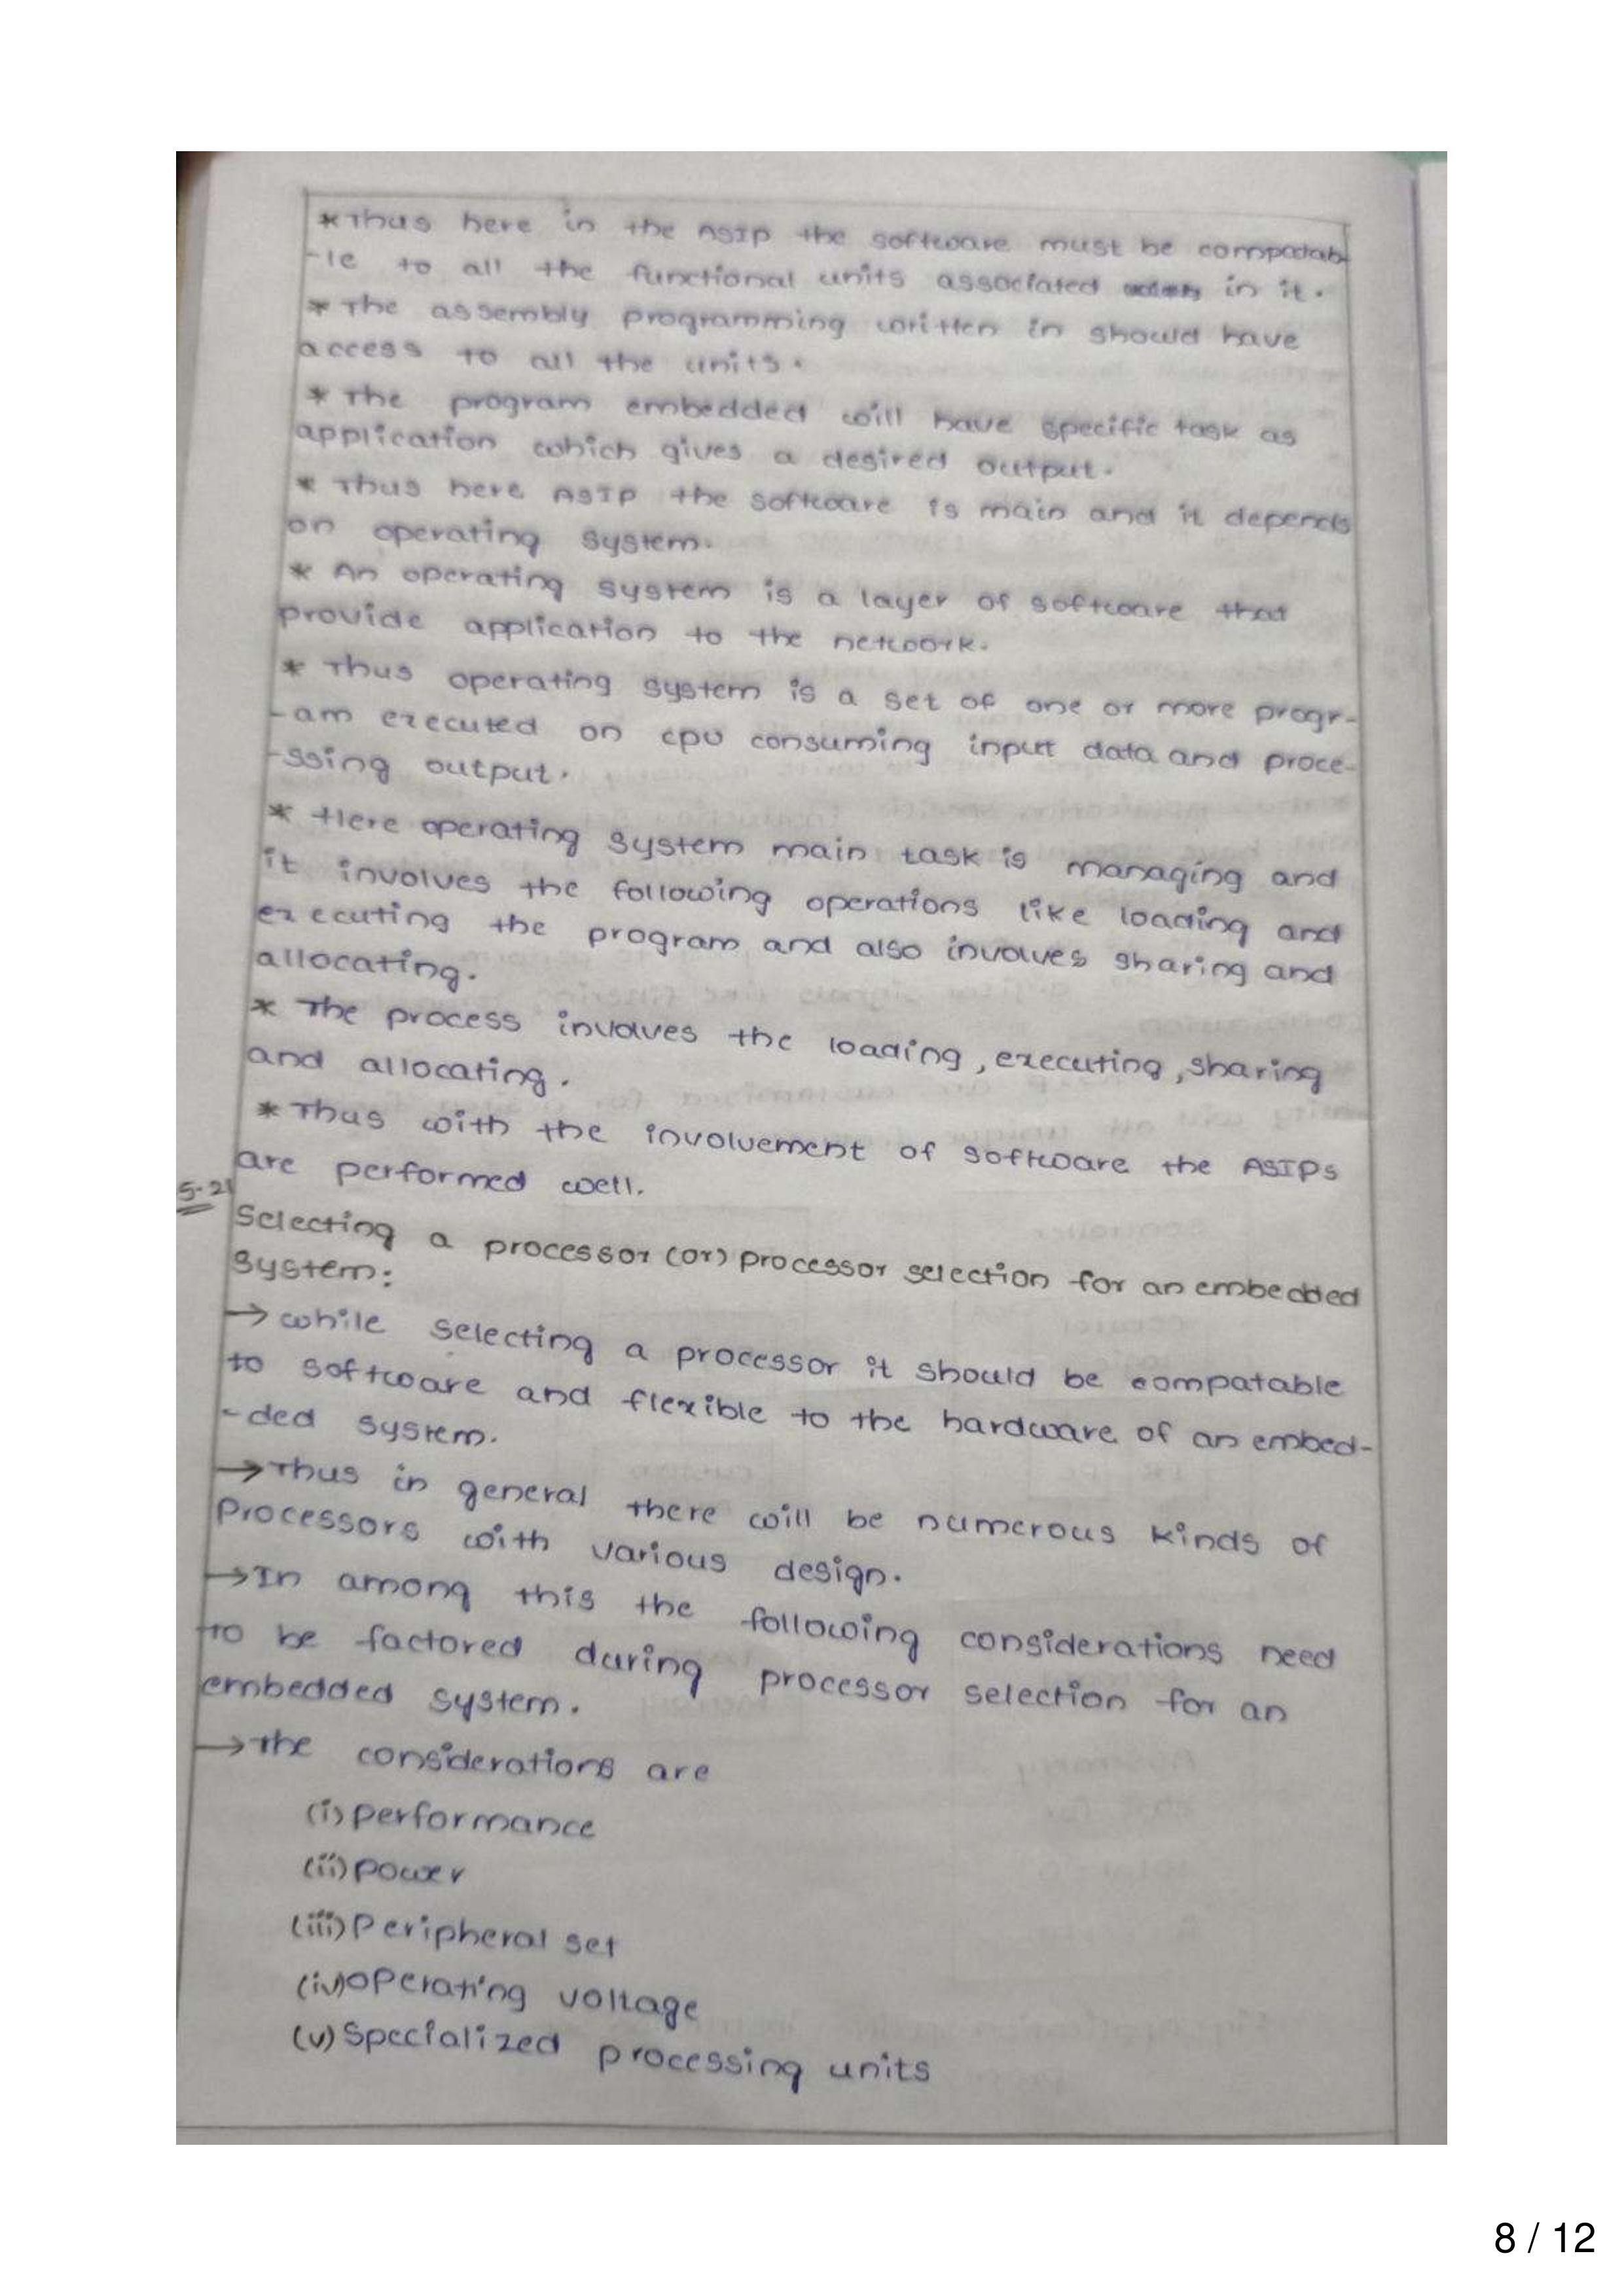 * Thus here in the ASIP the software must be compatab
-le to all the functional units associated in it.
* The assembly programming written in should have
access to all the units.
* The program embedded will have specific task as
application which gives a desired output.
* Thus here ASIP the software is main and it depends
on operating system.
* An operating system is a layer of software that
provide application to the network.
* Thus operating system is a set of one or more progr-
-am executed on cpu consuming input data and proce-
-ssing output.
* Here operating system main task is managing and
it involves the following operations like loading and
executing the program and also involves sharing and
allocating.
* The process involves the loading, executing, sharing
and allocating.
* Thus with the involvement of software the ASIPs
are performed well.
5-21
Selecting a processor (or) processor selection for an embedded
System:
→ while selecting a processor it should be compatable
to software and flexible to the hardware of an embed-
-ded system.
→ Thus in general there will be numerous kinds of
Processors with various design.
→ In among this the following considerations need
to be factored during processor selection for an
embedded system.
→ The considerations are
(i) performance
(ii) power
(iii) Peripheral set
(iv) operating voltage
(v) Specialized processing units
8 / 12